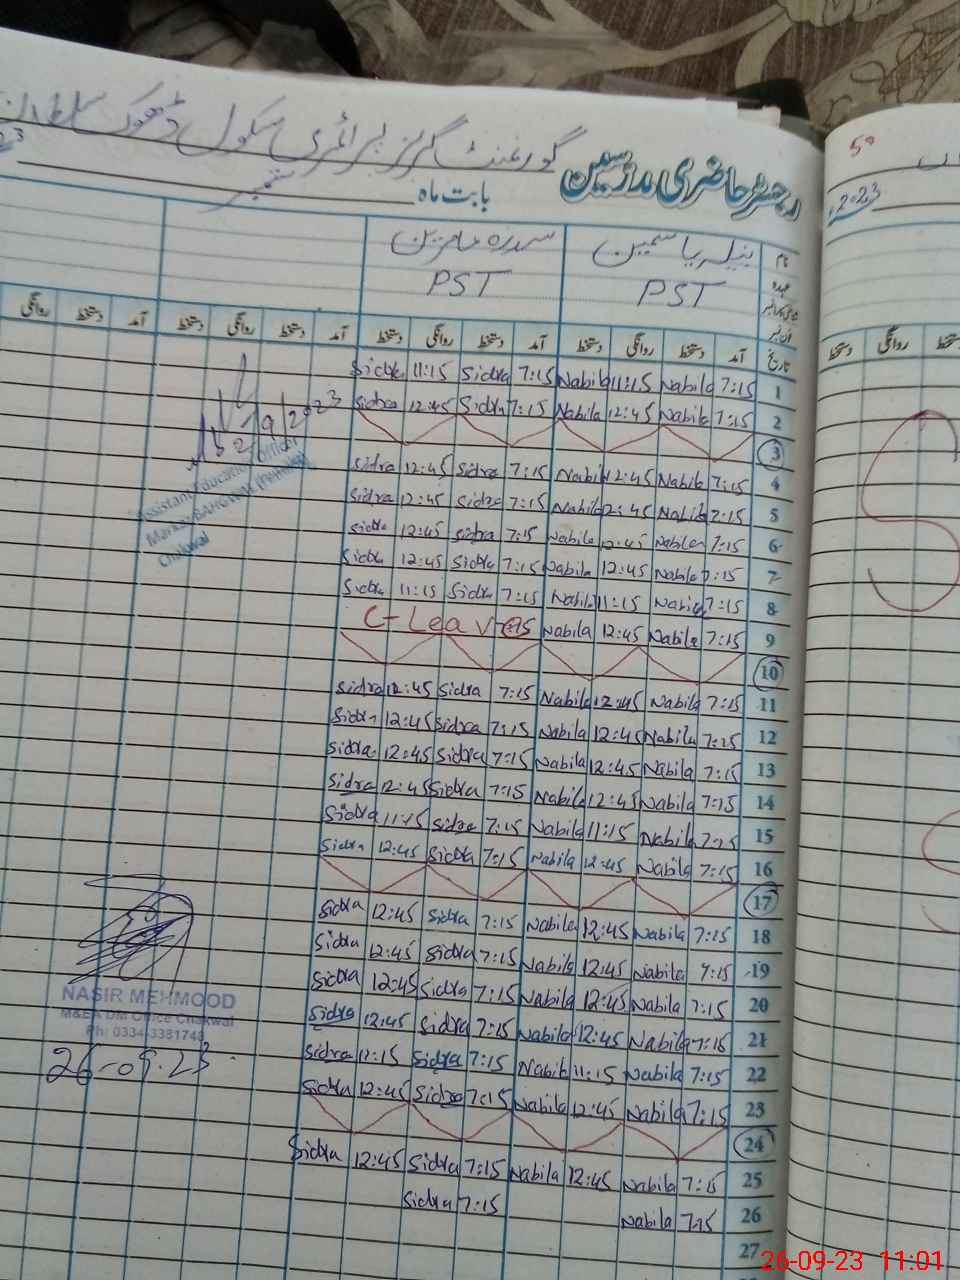 گورنمنٹ گرلز پرائمری سکول ڈھوک سلطان
رجسٹر حاضری مدرسین
بابت ماہ ستمبر
2023
50
نام نبیلہ یاسمین سدرہ
عہدہ PST PST
تاریخ آمد دستخط روانگی دستخط آمد دستخط روانگی دستخط آمد دستخط روانگی دستخط آمد دستخط روانگی
1 7:15 Nabila 11:15 Nabila 7:15 Sidra 11:15 Sidra
2 7:15 Nabila 12:45 Nabila 7:15 Sidra 12:45 Sidra
3
4 7:15 Nabila 12:45 Nabila 7:15 Sidra 12:45 Sidra
5 7:15 Nabila 12:45 Nabila 7:15 Sidra 12:45 Sidra
6 7:15 Nabila 12:45 Nabila 7:15 Sidra 12:45 Sidra
7 7:15 Nabila 12:45 Nabila 7:15 Sidra 12:45 Sidra
8 7:15 Nabila 11:15 Nabila 7:15 Sidra 11:15 Sidra
9 7:15 Nabila 12:45 Nabila C-Leave
10
11 7:15 Nabila 12:45 Nabila 7:15 Sidra 12:45 Sidra
12 7:15 Nabila 12:45 Nabila 7:15 Sidra 12:45 Sidra
13 7:15 Nabila 12:45 Nabila 7:15 Sidra 12:45 Sidra
14 7:15 Nabila 12:45 Nabila 7:15 Sidra 12:45 Sidra
15 7:15 Nabila 11:15 Nabila 7:15 Sidra 11:15 Sidra
16 7:15 Nabila 12:45 Nabila 7:15 Sidra 12:45 Sidra
17
18 7:15 Nabila 12:45 Nabila 7:15 Sidra 12:45 Sidra
19 7:15 Nabila 12:45 Nabila 7:15 Sidra 12:45 Sidra
20 7:15 Nabila 12:45 Nabila 7:15 Sidra 12:45 Sidra
21 7:15 Nabila 12:45 Nabila 7:15 Sidra 12:45 Sidra
22 7:15 Nabila 11:15 Nabila 7:15 Sidra 11:15 Sidra
23 7:15 Nabila 12:45 Nabila 7:15 Sidra 12:45 Sidra
24
25 7:15 Nabila 12:45 Nabila 7:15 Sidra 12:45 Sidra
26 7:15 Nabila 7:15 Sidra
27
9/2023
Assistant Education Officer
Markaz
Chakwal
NASIR MEHMOOD
M&EA DM Office Chakwal
Ph: 0334-3381748
26-09-23
دستخط روانگی دستخط
26-09-23 11:01